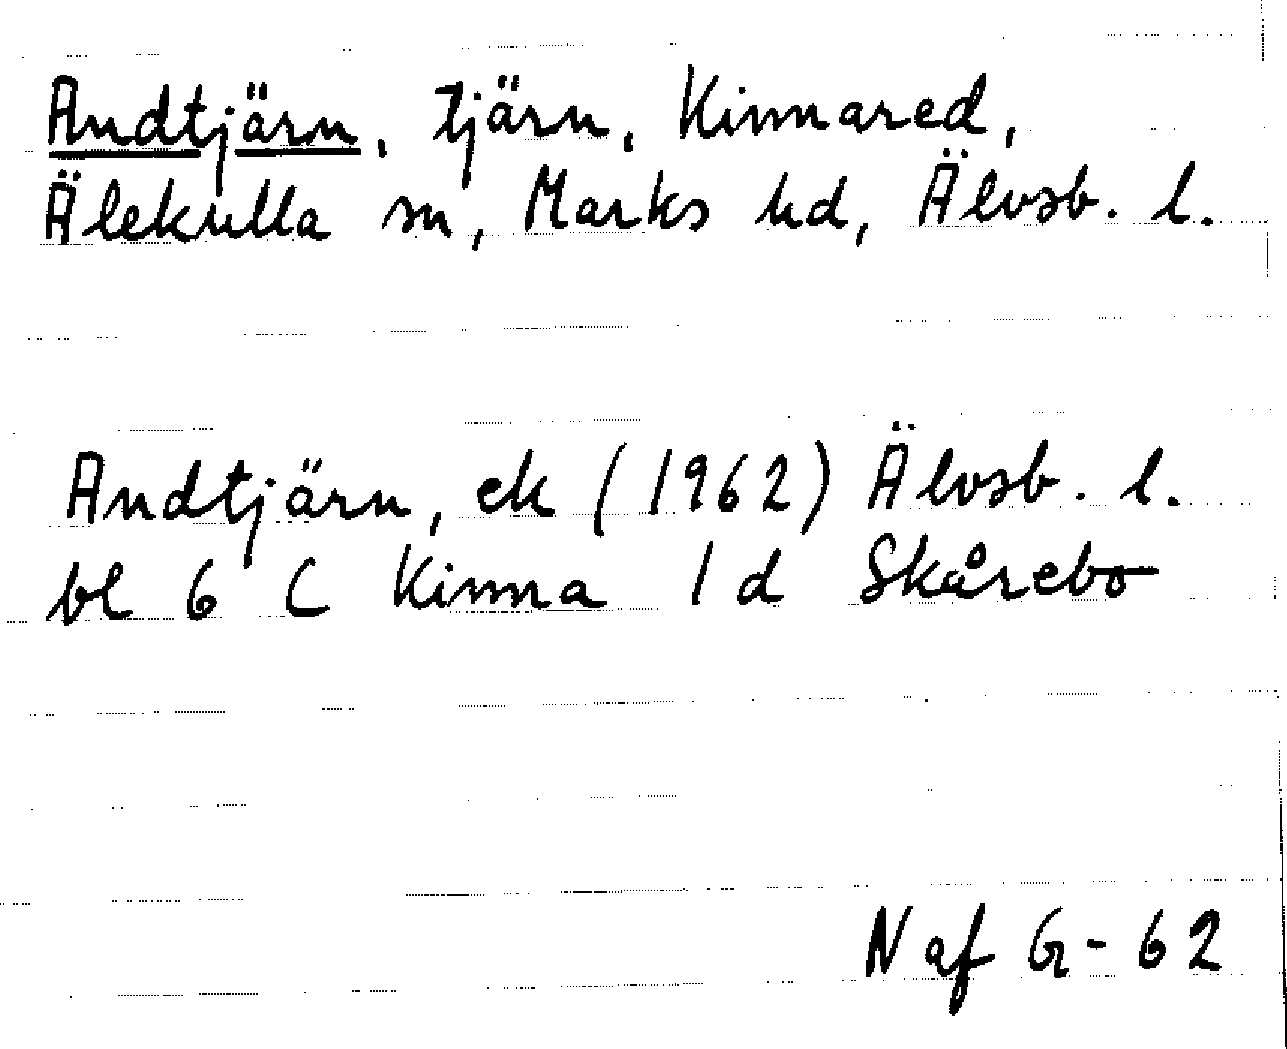 Andtjärn, tjärn, Kinnared,
Älekulla sn, Marks hd, Älvsb. l.
Andtjärn, ek (1962) Älvsb. l.
bl 6 C Kinna 1 d Skårebo
Naf G-62